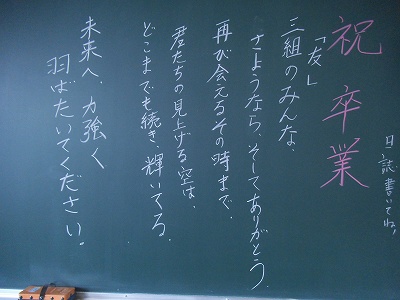 日誌書いてね!
祝卒業
「友」
三組のみんな、
さようなら、そしてありがとう。
再び会えるその時まで。
君たちの見上げる空は、
どこまでも続き、輝いてる。
未来へ、力強く
羽ばたいてください。